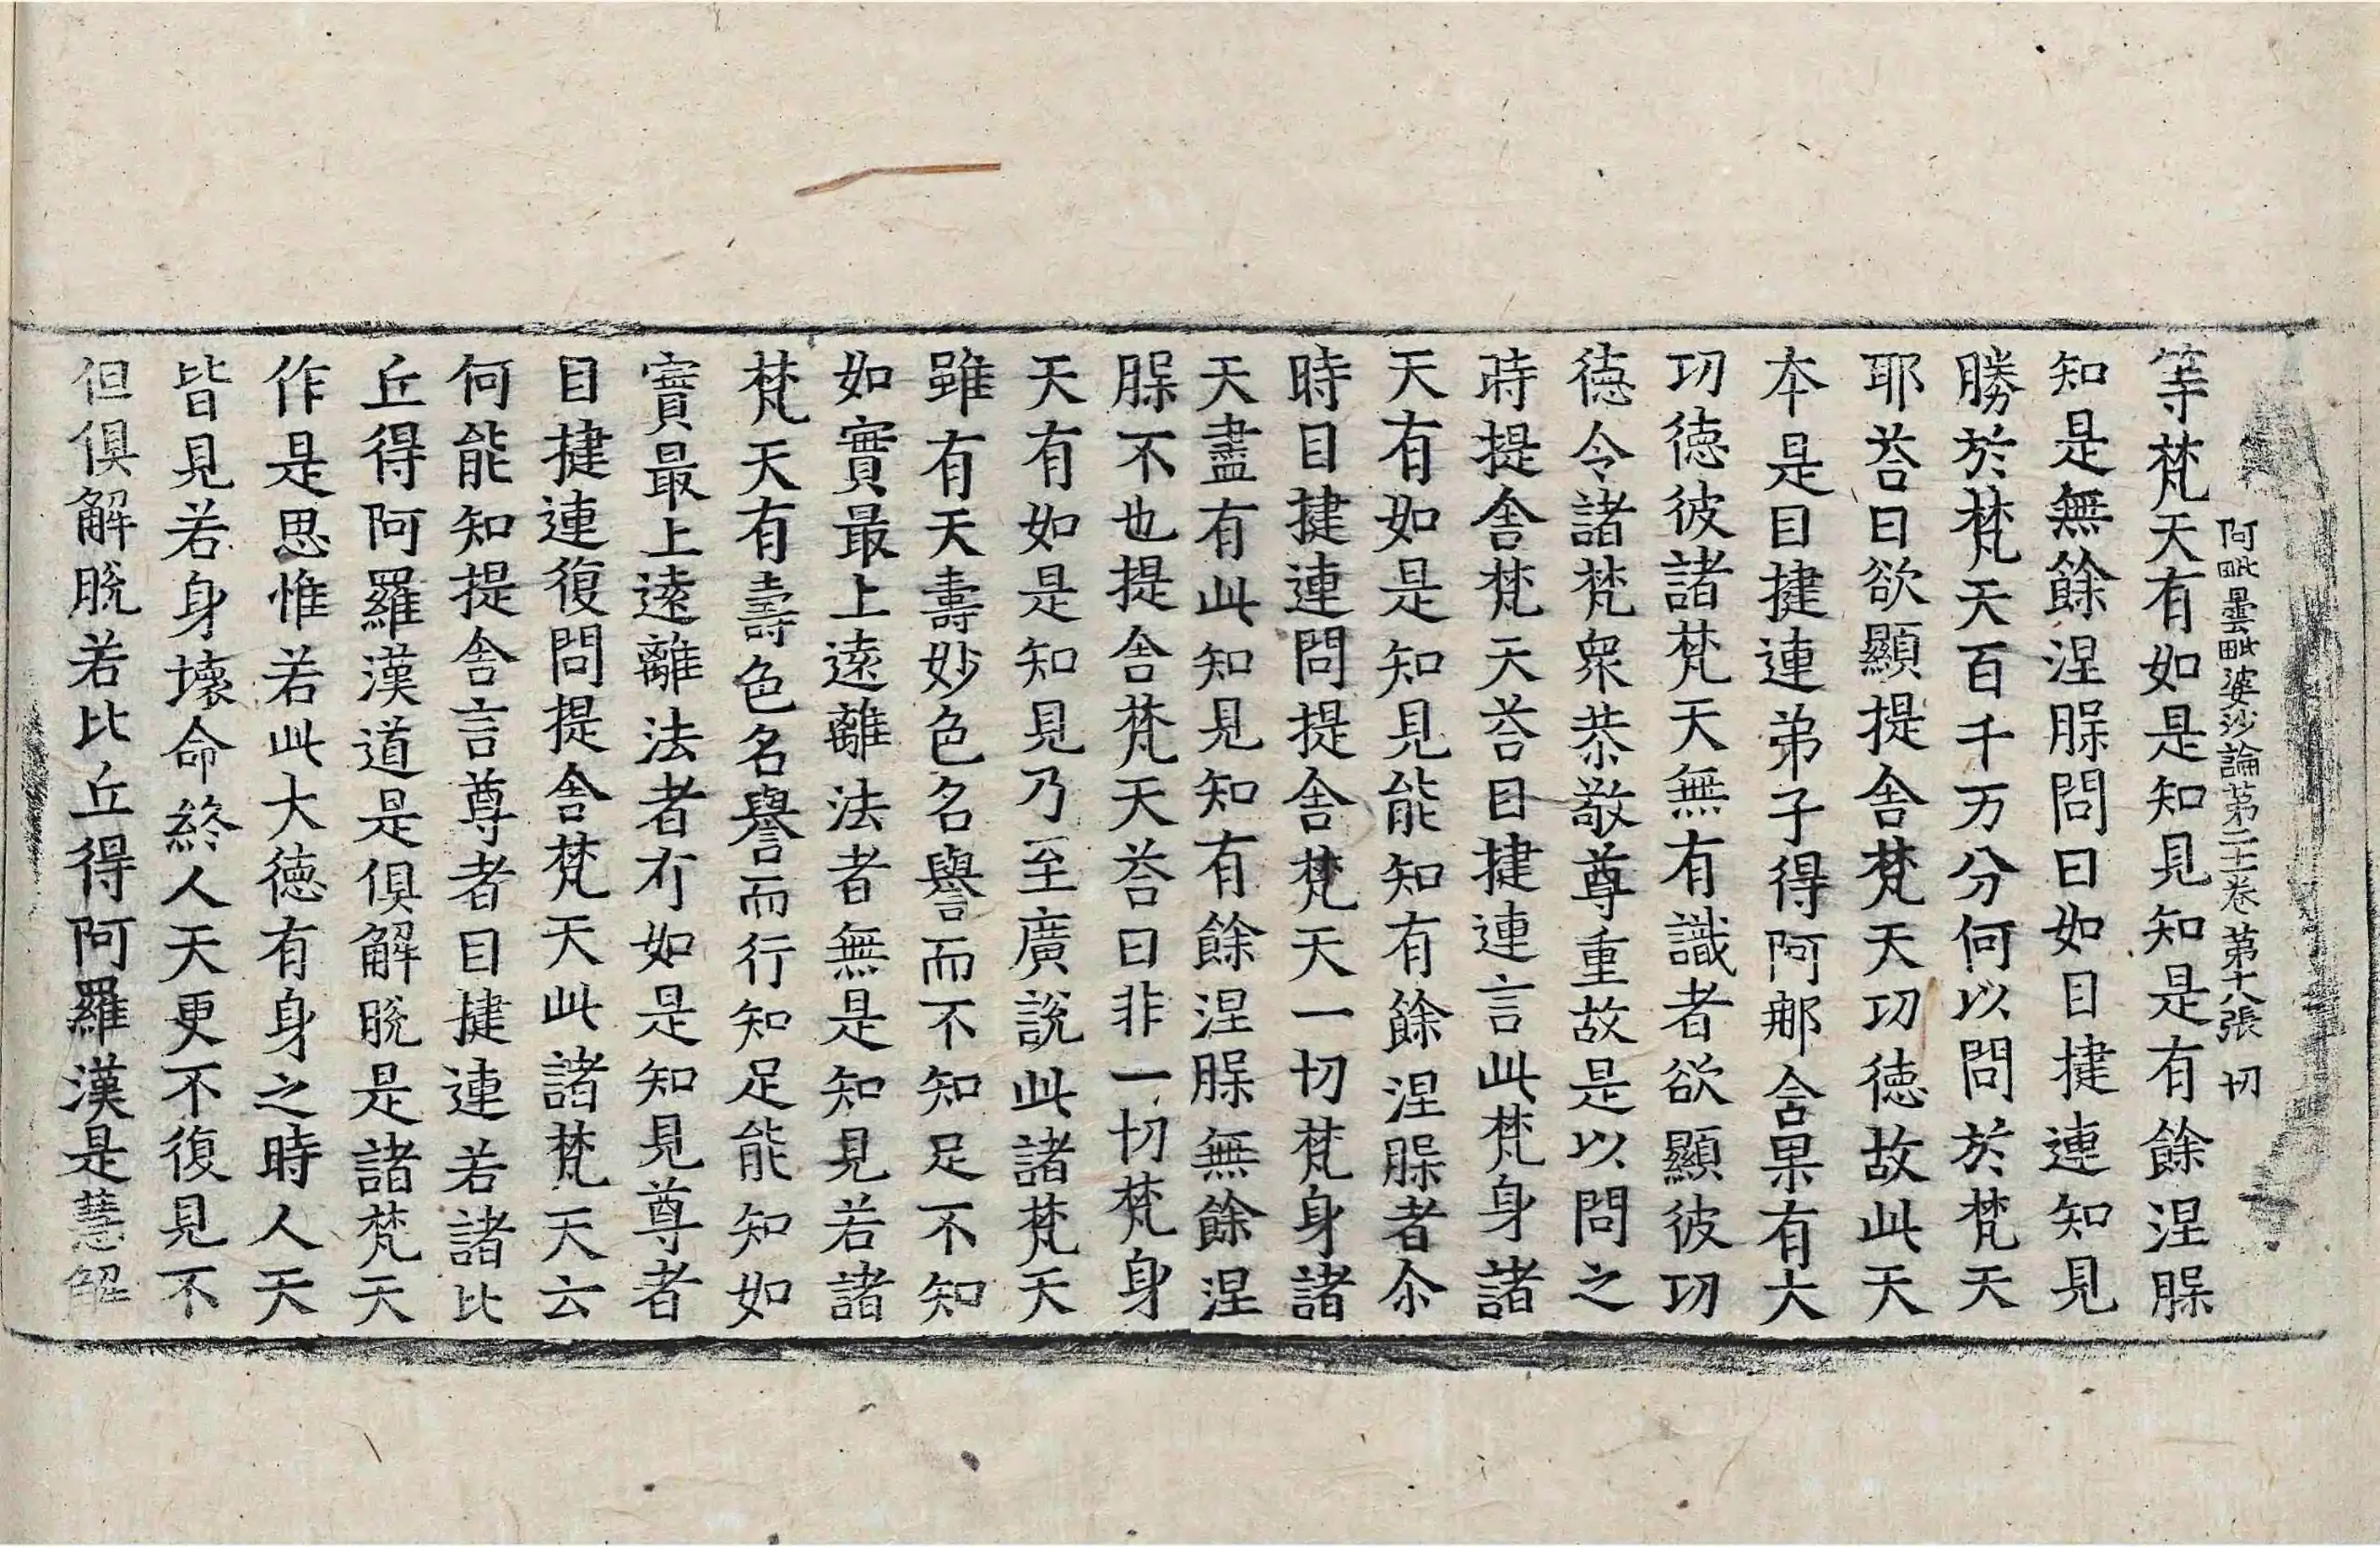 阿毗曇毗婆沙論第三十二卷 第十八張 切
等梵天有如是知見知是有餘涅脲
知是無餘涅脲問曰如目揵連知見
勝於梵天百千万分何以問於梵天
耶荅曰欲顯提舍梵天功德故此天
本是目揵連弟子得阿那含果有大
功德彼諸梵天無有識者欲顯彼功
德令諸梵衆恭敬尊重故是以問之
時提舍梵天荅目揵連言此梵身諸
天有如是知見能知有餘涅脲者尒
時目揵連問提舍梵天一切梵身諸
天盡有此知見知有餘涅脲無餘涅
脲不也提舍梵天荅曰非一切梵身
天有如是知見乃至廣說此諸梵天
雖有天壽妙色名譽而不知足不知
如實最上遠離法者無是知見若諸
梵天有壽色名譽而行知足能知如
實最上遠離法者有如是知見尊者
目揵連復問提舍梵天此諸梵天云
何能知提舍言尊者目揵連若諸比
丘得阿羅漢道是俱解脫是諸梵天
作是思惟若此大德有身之時人天
皆見若身壞命終人天更不復見不
但俱解脫若比丘得阿羅漢是慧解